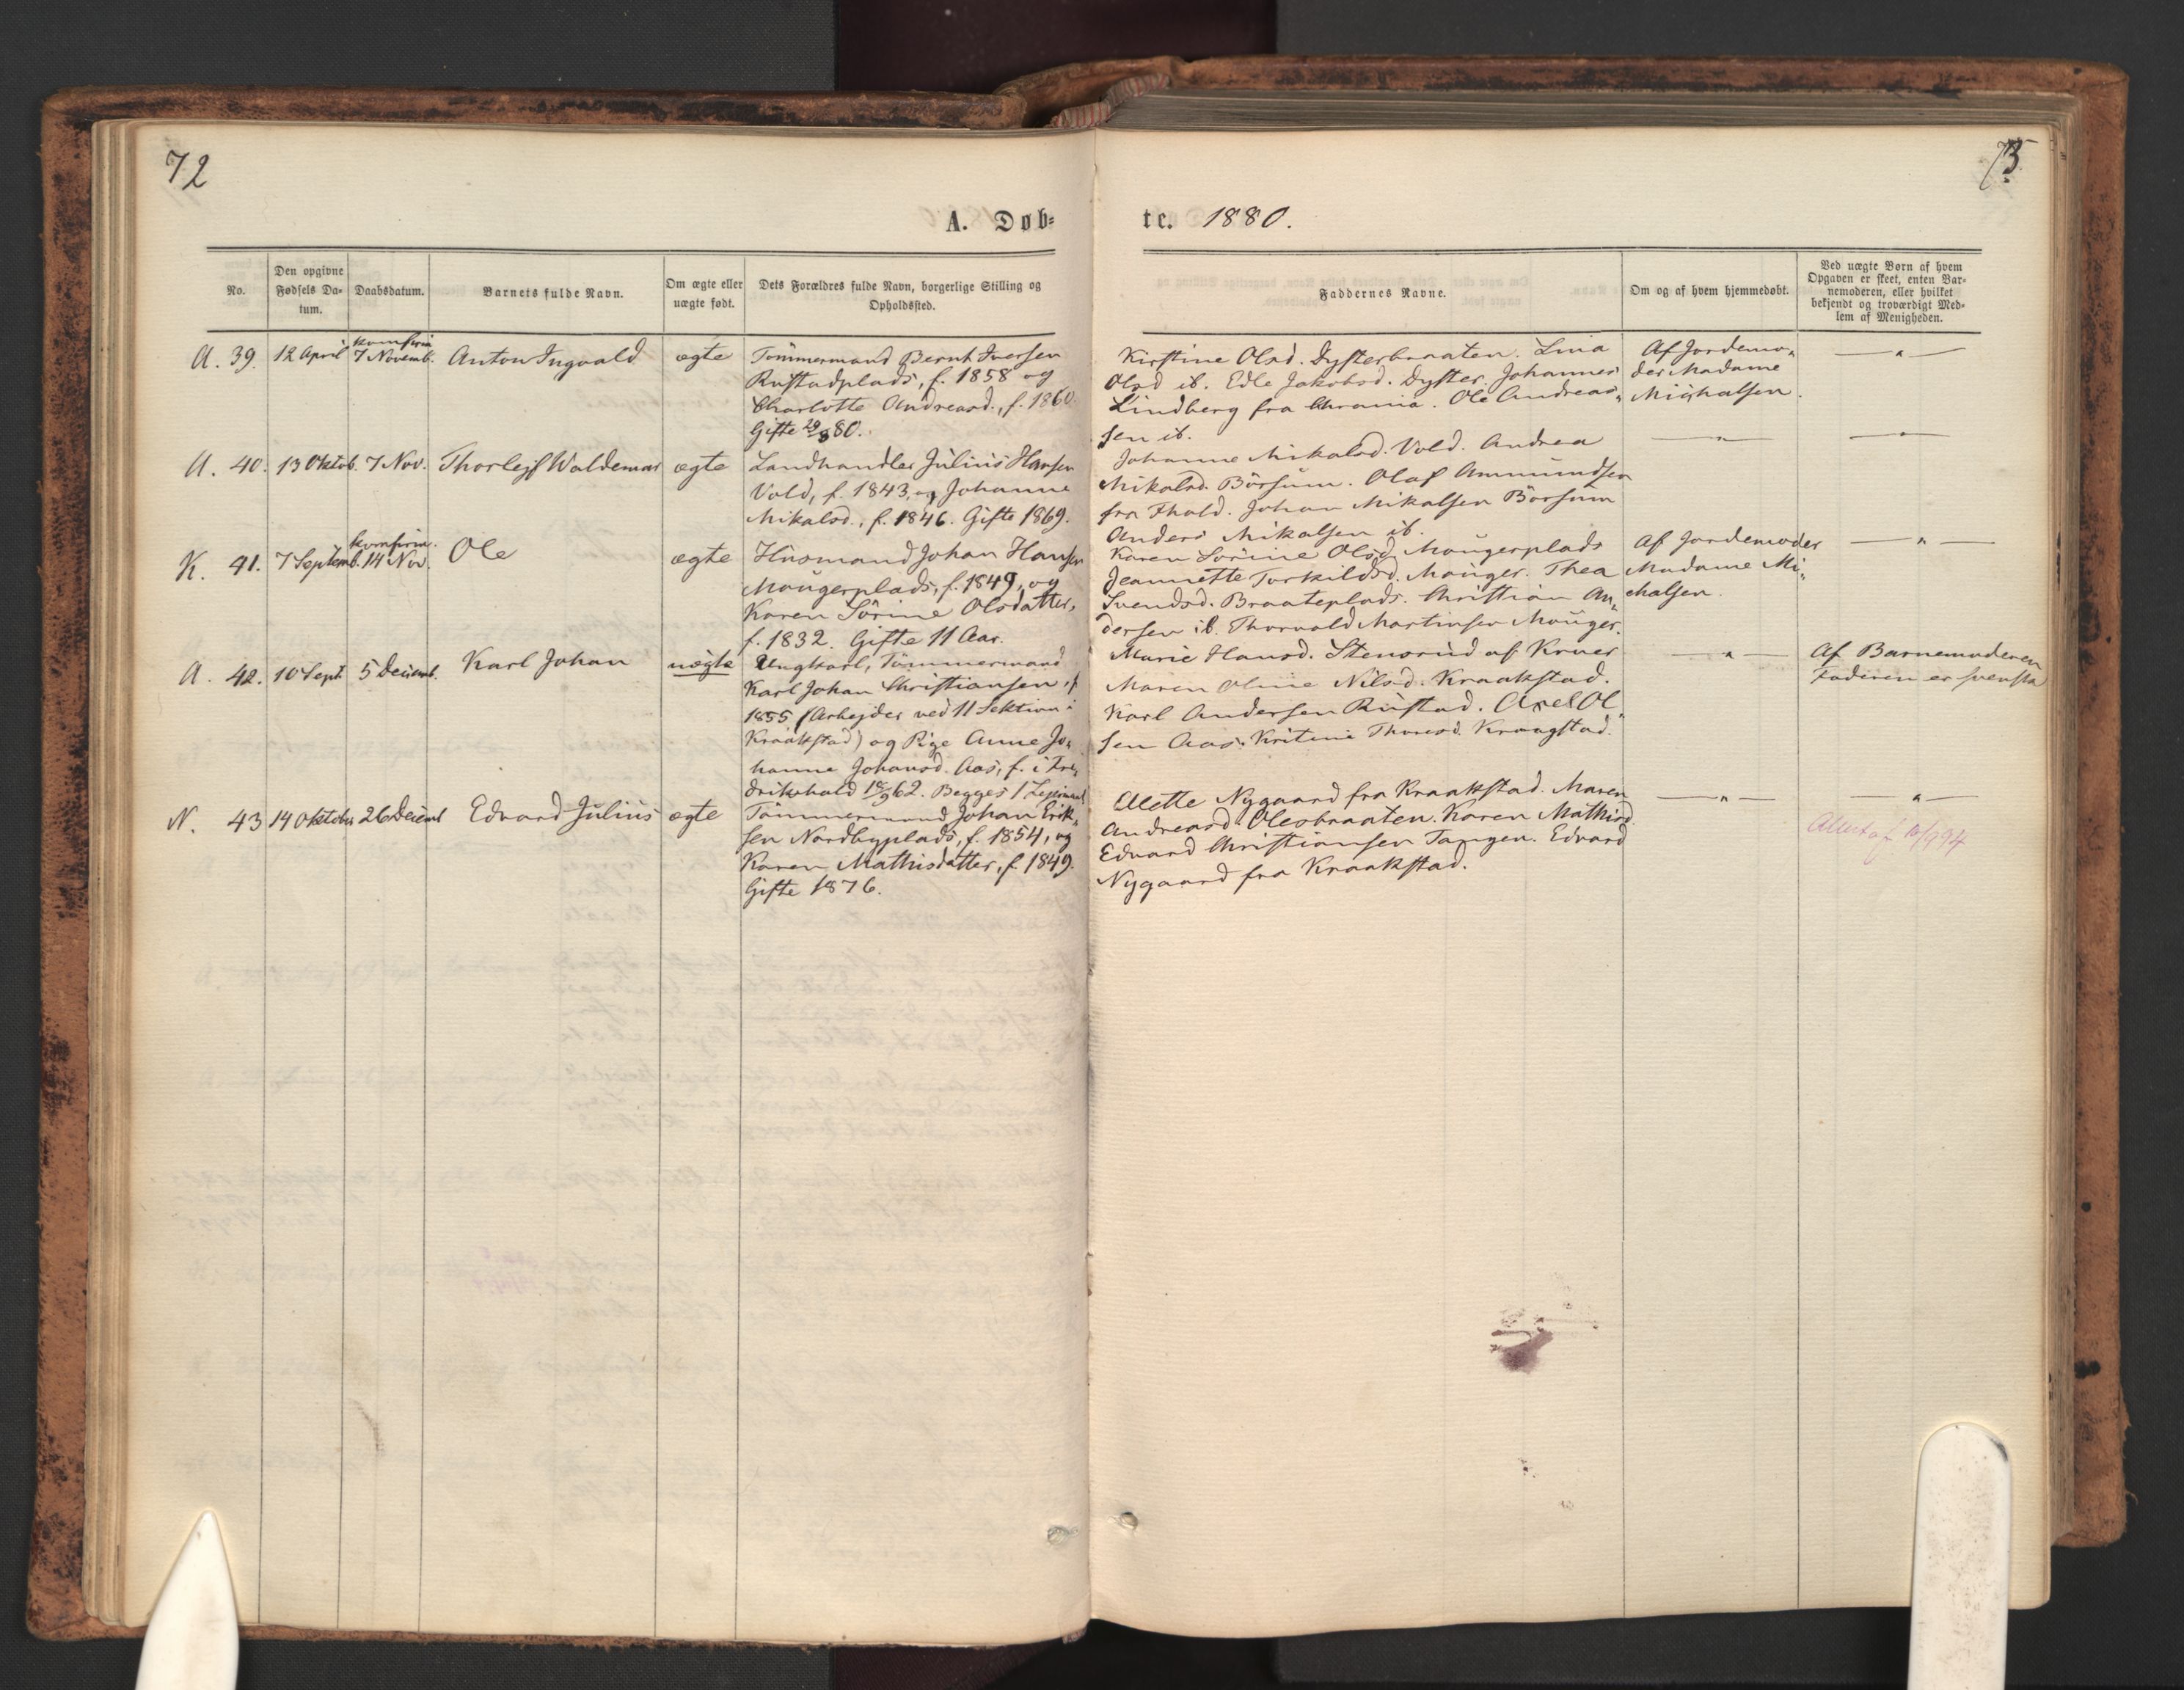 72
73
A. Døb-
te. 1880.
No.
Den opgivne Fødsels Da-
tum.
Daabsdatum.
Barnets fulde Navn.
Om ægte eller
uægte født.
Dets Forældres fulde Navn, borgerlige Stilling og
Opholdssted.
Faddernes Navne.
Om og af hvem hjemmedøbt.
Ved uægte Børn af hvem
Opgaven er skeet, enten Bar-
nemoderen, eller hvilket
bekjendt og troværdigt Med-
lem af Menigheden.
A. 39. 12 April
komfirm
7 Novemb.
Anton Ingvald
ægte
Tömmermand Bernt Iversen
Rustadplads, f. 1858 og
Charlotte Andreasd., f. 1860.
Gifte 29/8 80.
Kirstine Olsd. Dysterbraaten. Lina
Olsd ib. Edle Jakobsd. Dyster. Johannes
Lindberg fra Chrania. Ole Andrea-
sen ib.
Af Jordemo-
der Madame
Mighalsen.
— " —
A. 40. 13 Oktob. 7 Nov. Thorlejf Waldemar ægte
Landhandler Julius Hansen
Vold, f. 1843, og Johanne
Mikalsd., f. 1846. Gifte 1869.
Johanne Mikalsd. Vold. Andrea
Mikalsd. Börsum. Olaf Ammundsen
fra Fhald. Johan Mikalsen Börsum
Anders Mikalsen ib.
— " —
— " —
K. 41. 7 Septemb.
komfirm.
14 Nov.
Ole
ægte
Husmand Johan Hansen
Maugerplads, f. 1849, og
Karen Sörine Olsdatter,
f. 1832. Gifte 11 Aar.
Karen Sörine Olsd. Maugerplads
Jeannette Torkildsd. Mauger. Thea
Svendsd. Braateplads. Christian An-
dersen ib. Thorvald Martinsen Mauger.
Af Jordemoder
Madame Mi-
chalsen.
— " —
A. 42. 10 Sept 5 Decemb. Karl Johan uægte
Ungkarl, Tömmermand
Karl Johan Christiansen, f
1855 (Arbejder ved 11 Sektion i
Kraakstad) og Pige Anne Jo-
hanne Johansd. Aas, f. i Fre-
drikshald 62. Begges 1
Marie Hansd. Stensrud af Kroer
Maren Oline Nilsd. Kraakstad.
Karl Andersen Rustad. Axel Ol-
sen Aas. Kritine Thoresd. Kraagstad.
— " —
Af Barnemoderen
Faderen er svensk
N. 43 14 Oktober 26 Decemb Edvard Julius ægte
Tömmermand Johan Erik-
sen Nordbyplads, f. 1854, og
Karen Mathisdatter, f 1849.
Gifte 1876.
Elette Nygaard fra Kraakstad. Maren
Andreasd. Olesbraaten. Karen Mathisd.
Edvard Christiansen Tangen. Edvard
Nygaard fra Kraakstad.
— " —
— " —
Attest af 10/9 94